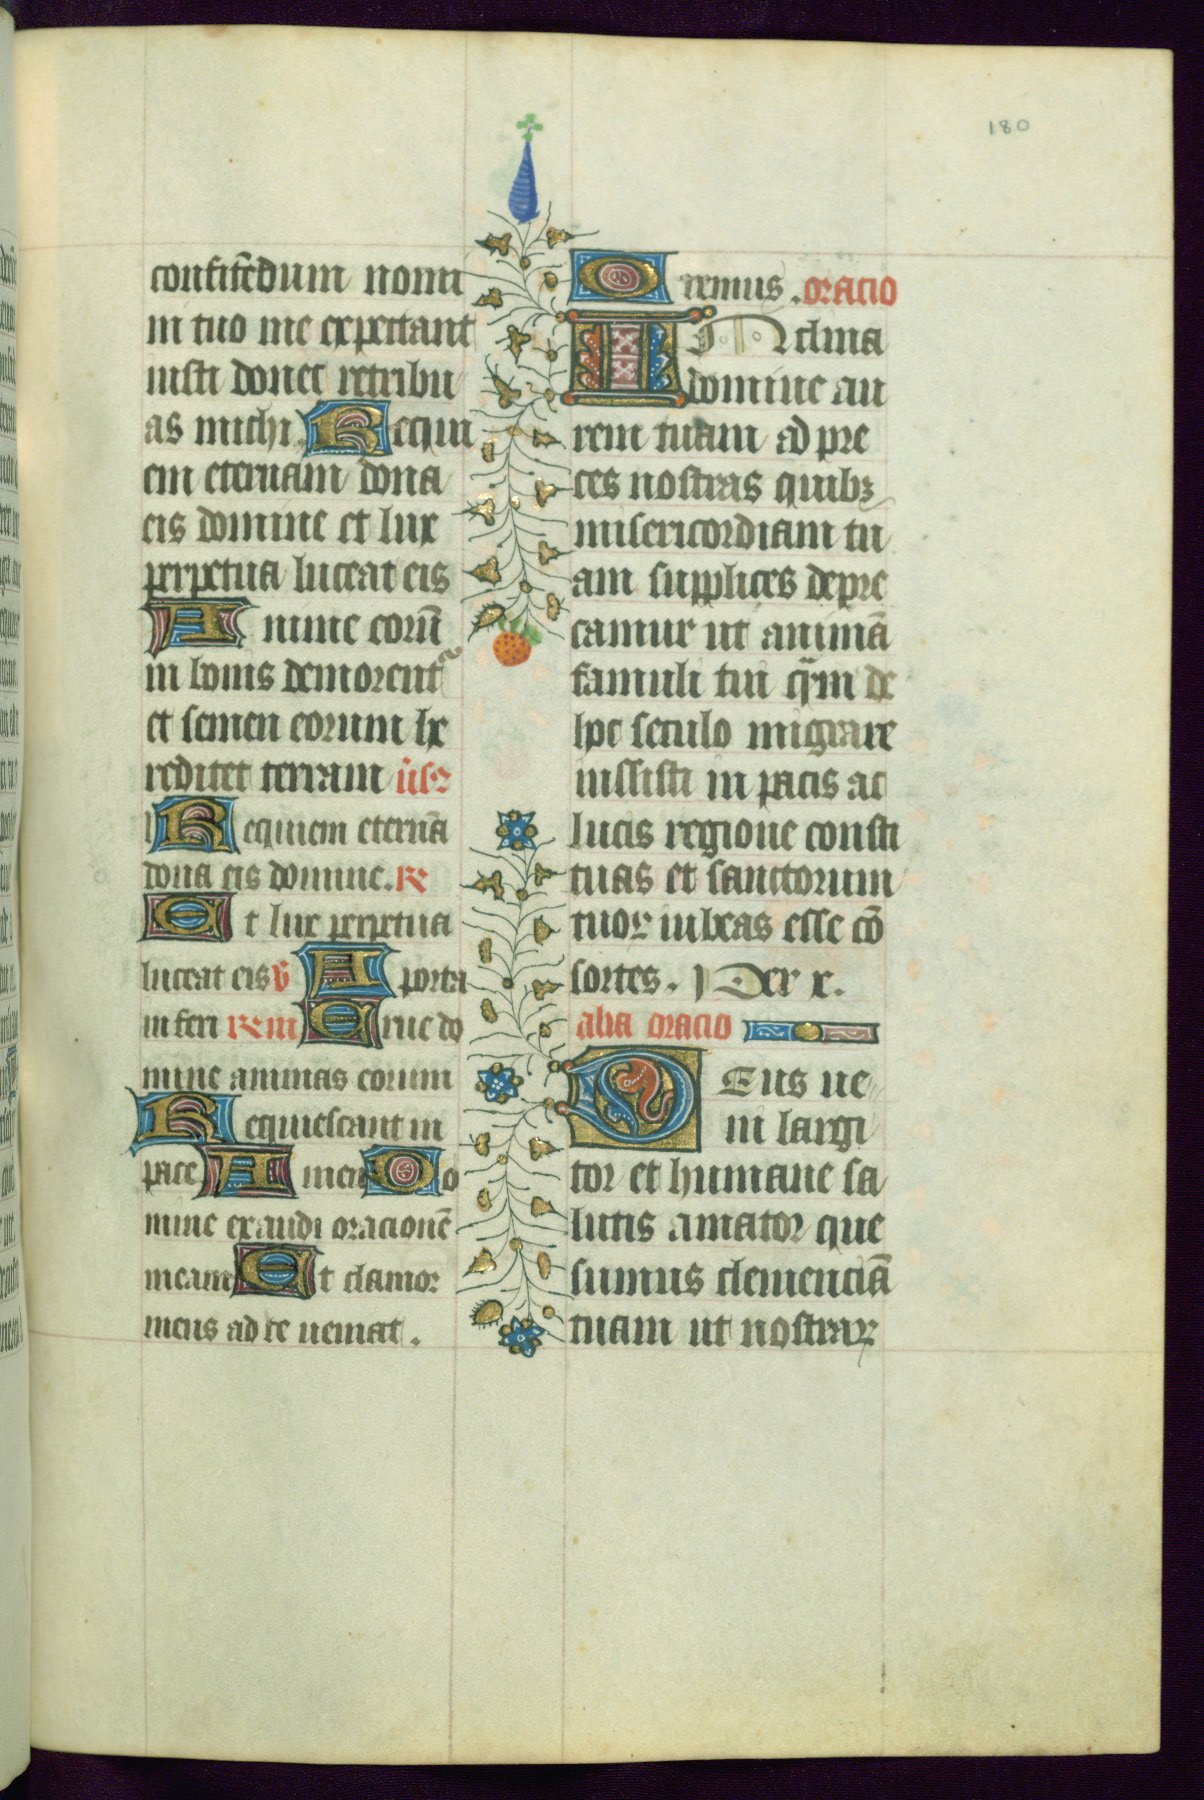 180
confitēdum nomi
ni tuo me expectant
iusti donec retribu
as michi. Requi
em eternam dona
eis domine et lux
perpetua luceat eis
Anime eorū
in bonis demorent᷑
et semen eorum he
reditet terram
Requiem eternā
dona eis domine. R
Et lux perpetua
luceat eis v̄ A porta
inferi Erue do
mine animas eorum
Requiescant in
pace Amen Do
mine exaudi oracionē
meam Et clamor
meus ad te veniat.
Oremus. oracio
Inclina
domine au
rem tuam ad pre
ces nostras quibꝫ
misericordiam tu
am supplices depre
camur ut animā
famuli tui quam de
hoc seculo migrare
iussisti in pacis ac
lucis regione consti
tuas et sanctorum
tuoꝝ iubeas esse cō
sortes. Per x.
alia oracio
Deus ue
ni largi
tor et humane sa
lutis amator que
sumus clemenciā
tuam ut nostraꝝ